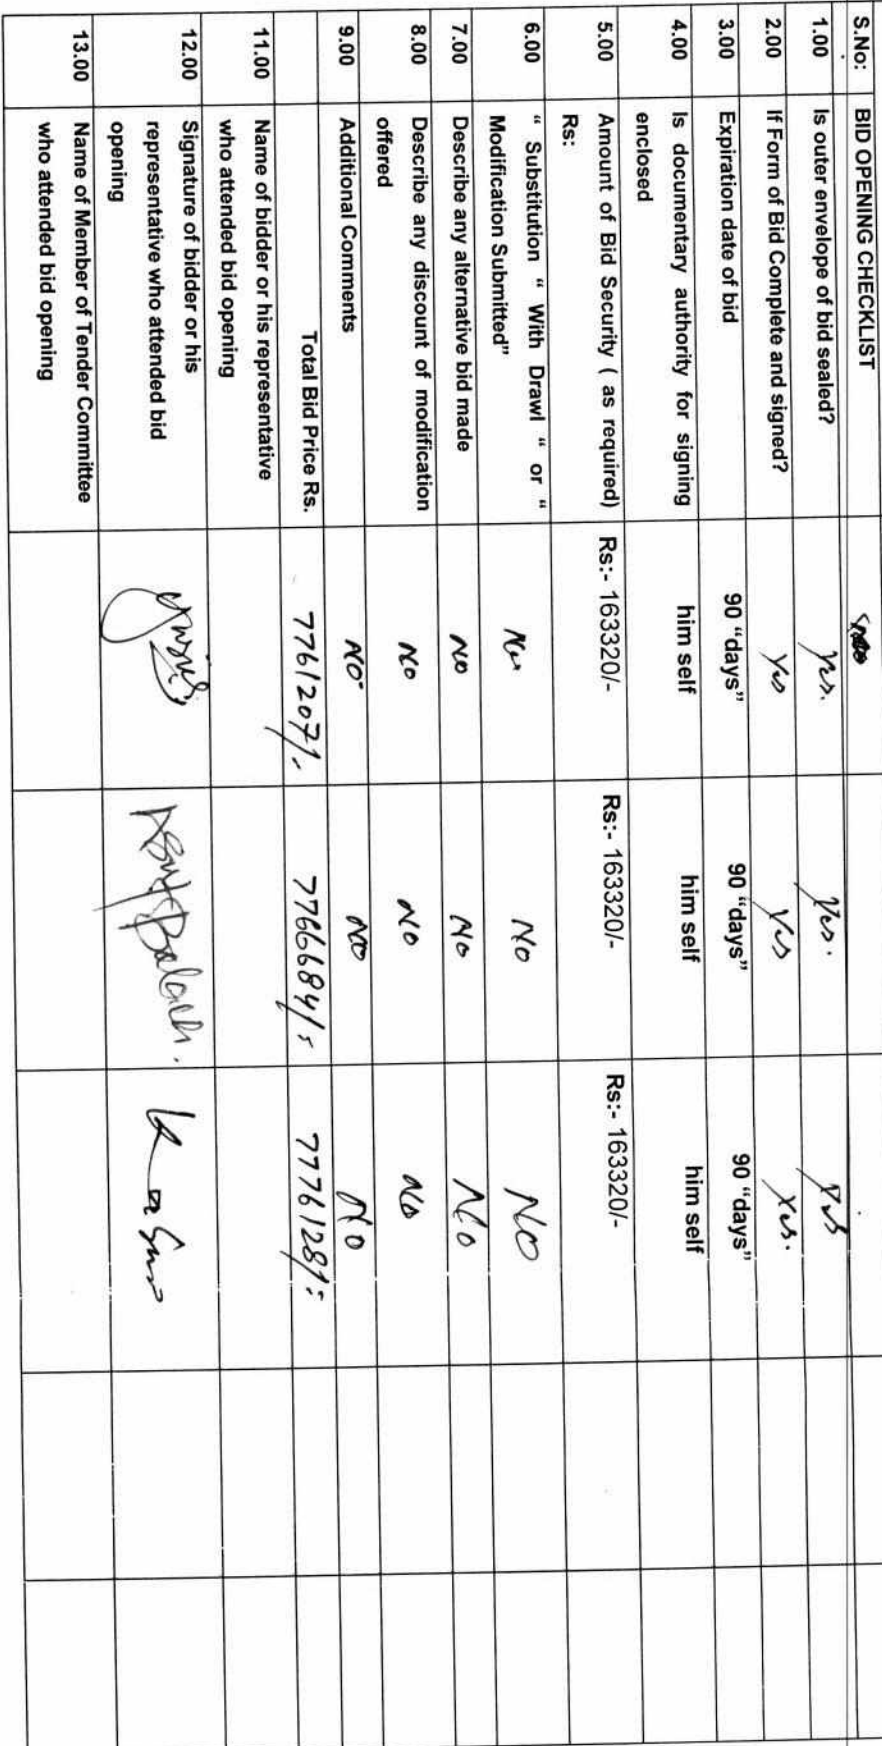 S.No: BID OPENING CHECKLIST
1.00 Is outer envelope of bid sealed? Yes. Yes. Yes
2.00 If Form of Bid Complete and signed? Yes Yes Yes.
3.00 Expiration date of bid 90 “days” 90 “days” 90 “days”
4.00 Is documentary authority for signing him self him self him self
enclosed
5.00 Amount of Bid Security ( as required) Rs:- 163320/- Rs:- 163320/- Rs:- 163320/-
Rs:
6.00 “ Substitution “ With Drawl “ or “ No No NO
Modification Submitted”
7.00 Describe any alternative bid made NO No No
8.00 Describe any discount of modification NO No No
offered
9.00 Additional Comments NO NO No
Total Bid Price Rs. 7761207/- 7766684/= 7776128/=
11.00 Name of bidder or his representative
who attended bid opening
12.00 Signature of bidder or his
representative who attended bid Balach.
opening
13.00 Name of Member of Tender Committee
who attended bid opening